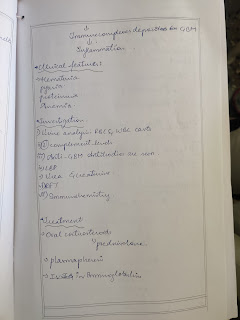 ↓
Immunecomplexes deposition on GBM
↓
Inflammation
Clinical features
→ Hematuria
pyuria
proteinuria
Anaemia
Investigation
i) Urine analysis RBC & WBC casts
complement levels
Anti-GBM antibodies are seen
→ CBP
→ Urea & creatinine
→ LFT
Immunochemistry
Treatment
→ Oral corticosteroids
prednisolone
→ plasmapheresis
→ Immunoglobulin